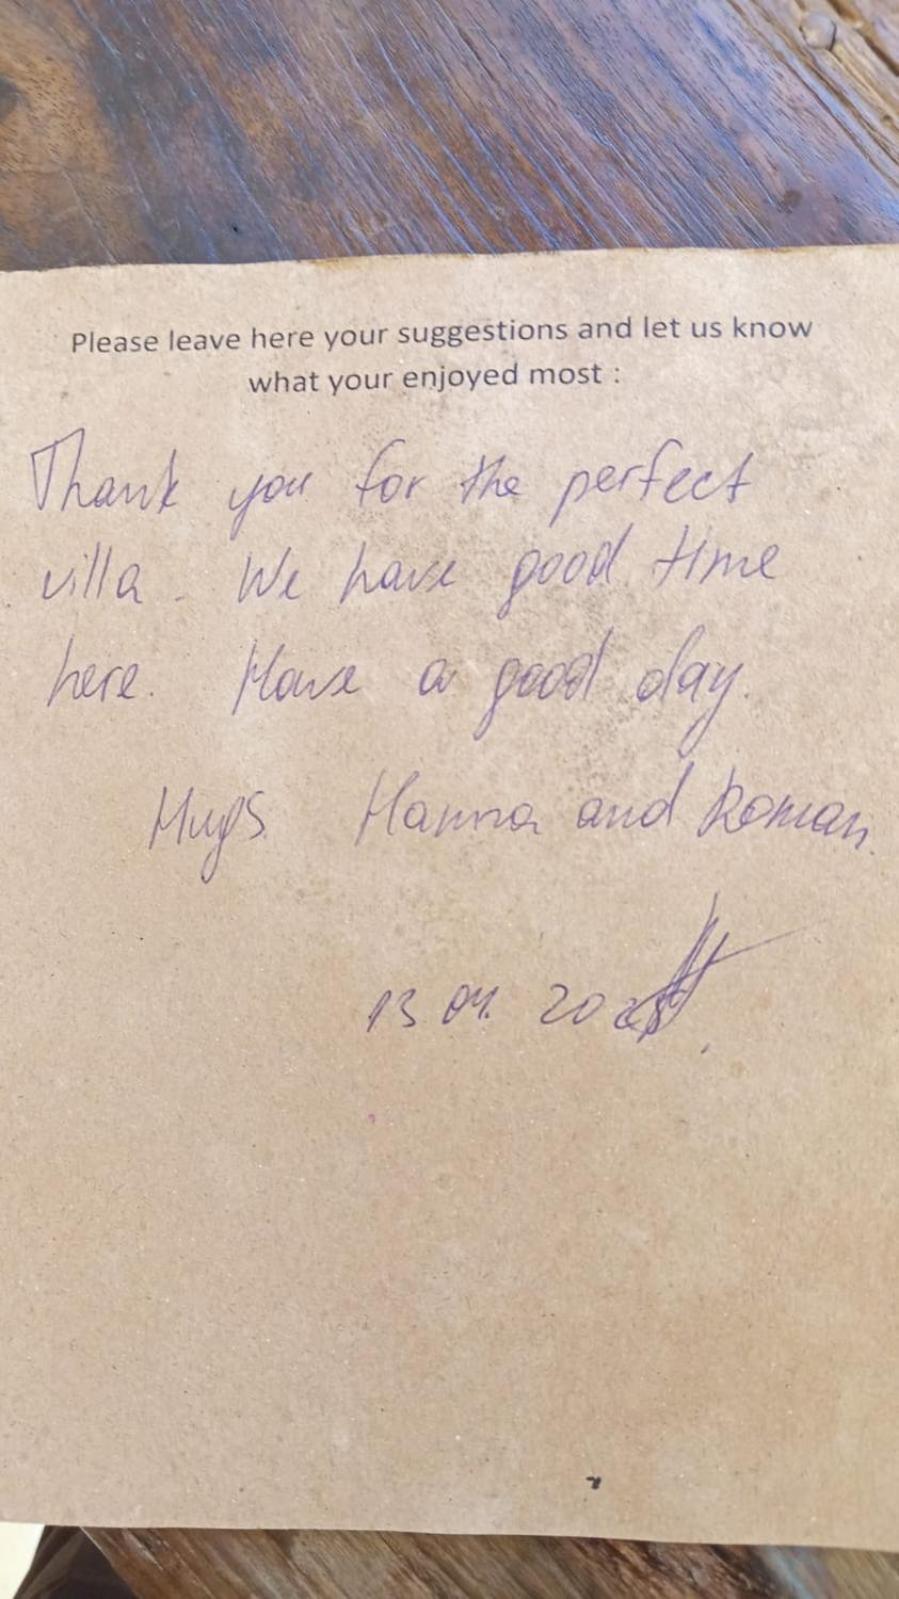 Please leave here your suggestions and let us know
what your enjoyed most :
Thank you for the perfect
villa. We have good time
here. Have a good day.
Hugs. Hanna and Roman.
13 04. 20